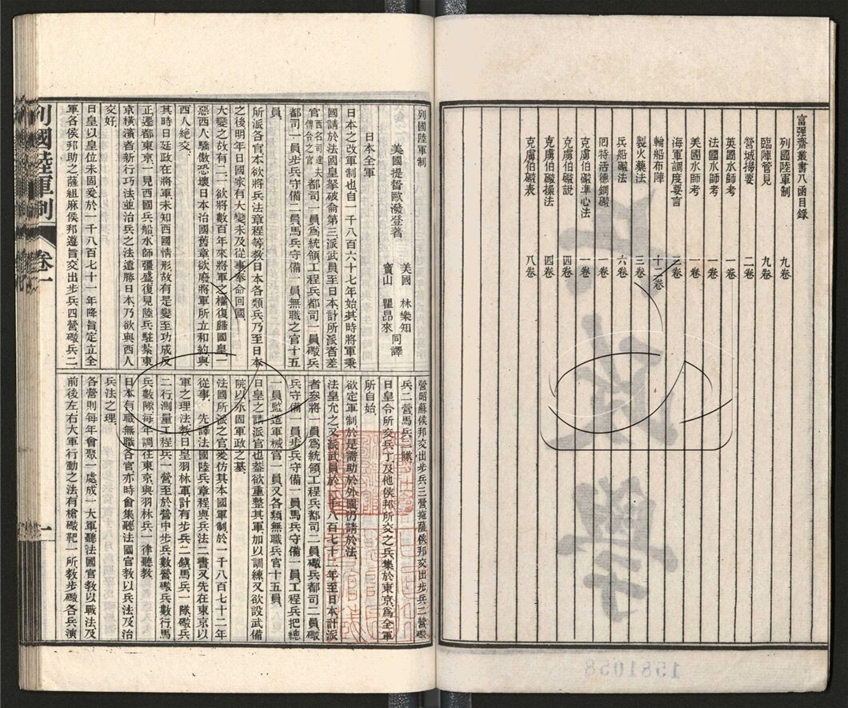 富强齋叢書八函目錄
列國陸軍制 九卷
臨陣管見 九卷
營城揭要 二卷
英國水師考 一卷
法國水師考 一卷
美國水師考 一卷
海軍調度要言 三卷
輪船布陣 十二卷
製火藥法 三卷
兵船礮法 六卷
回特活德鋼礮 一卷
克虜伯礮準心法 一卷
克虜伯礮說 四卷
克虜伯礮操法 四卷
克虜伯礮表 八卷
列國陸軍制
美國提督歐潑登著 美國 林樂知 寶山 瞿昂來 同譯
日本全軍
日本之改軍制也自一千八百六十七年始其時將軍秉
國請於法國皇拏破侖第三派武員至日本計所派者差
官西名司達夫傳令之官都司一員爲統領工程兵都司一員礮兵
都司一員步兵守備一員馬兵守備一員無職之官十五
員
所派各官本欲將兵法章程等教日本各類兵乃至日本
之後明年日國家有大變未及從事奉命回國
大變之故有二一欲將數百年來將軍之權復歸國皇一
惡西人驕傲恐壞日本治國舊章欲廢將軍所立和約與
西人絕交
其時日廷政在將軍未知西國情形故有是變至功成反
正遷都東京一見西國兵船水師彊盛復見陸兵駐紮東
京橫濱者新行巧法並治兵之法遠勝日本乃欲與西人
交好
日皇以皇位未固爰於一千八百七十一年降旨定立全
軍各侯邦助之薩組麻侯邦遵旨交出步兵四營礮兵二
營昭蘇侯邦交出步兵三營 侯邦交出步兵二營礮
兵二營馬兵二隊
日皇合所交兵丁及他侯邦所交之兵集於東京爲全軍
所自始
欲定軍制於是需助於外職仍請於法
法皇允之又派武員於一千八百七十二年至日本計派
者參將一員爲統領工程兵都司二員礮兵都司二員礮
兵守備一員步兵守備一員馬兵守備一員工程兵把總
一員監造軍械官一員又各類無職兵官十五員
日皇之請派官也蓋欲重整其軍加以訓練又欲設武備
院以永固軍政之基
法國所派之官爰仿其本國軍制於一千八百七十二年
從事 先譯法國陸兵章程與兵法二書又先在東京以
軍之理法教日皇羽林軍計有步兵二鎮馬兵一隊礮兵
二行測量工程兵一營至於營中步兵數營礮兵數行馬
兵數隊每年調往東京與羽林兵一律聽教
日本有職無職各官亦時會集聽法國官教以兵法及治
兵法之理
各營則每年會聚一處成一大軍聽法國官教以戰法及
前後左右大軍行動之法有槍礮靶一所教步礮各兵演
列國陸軍制 卷一
一
1581058